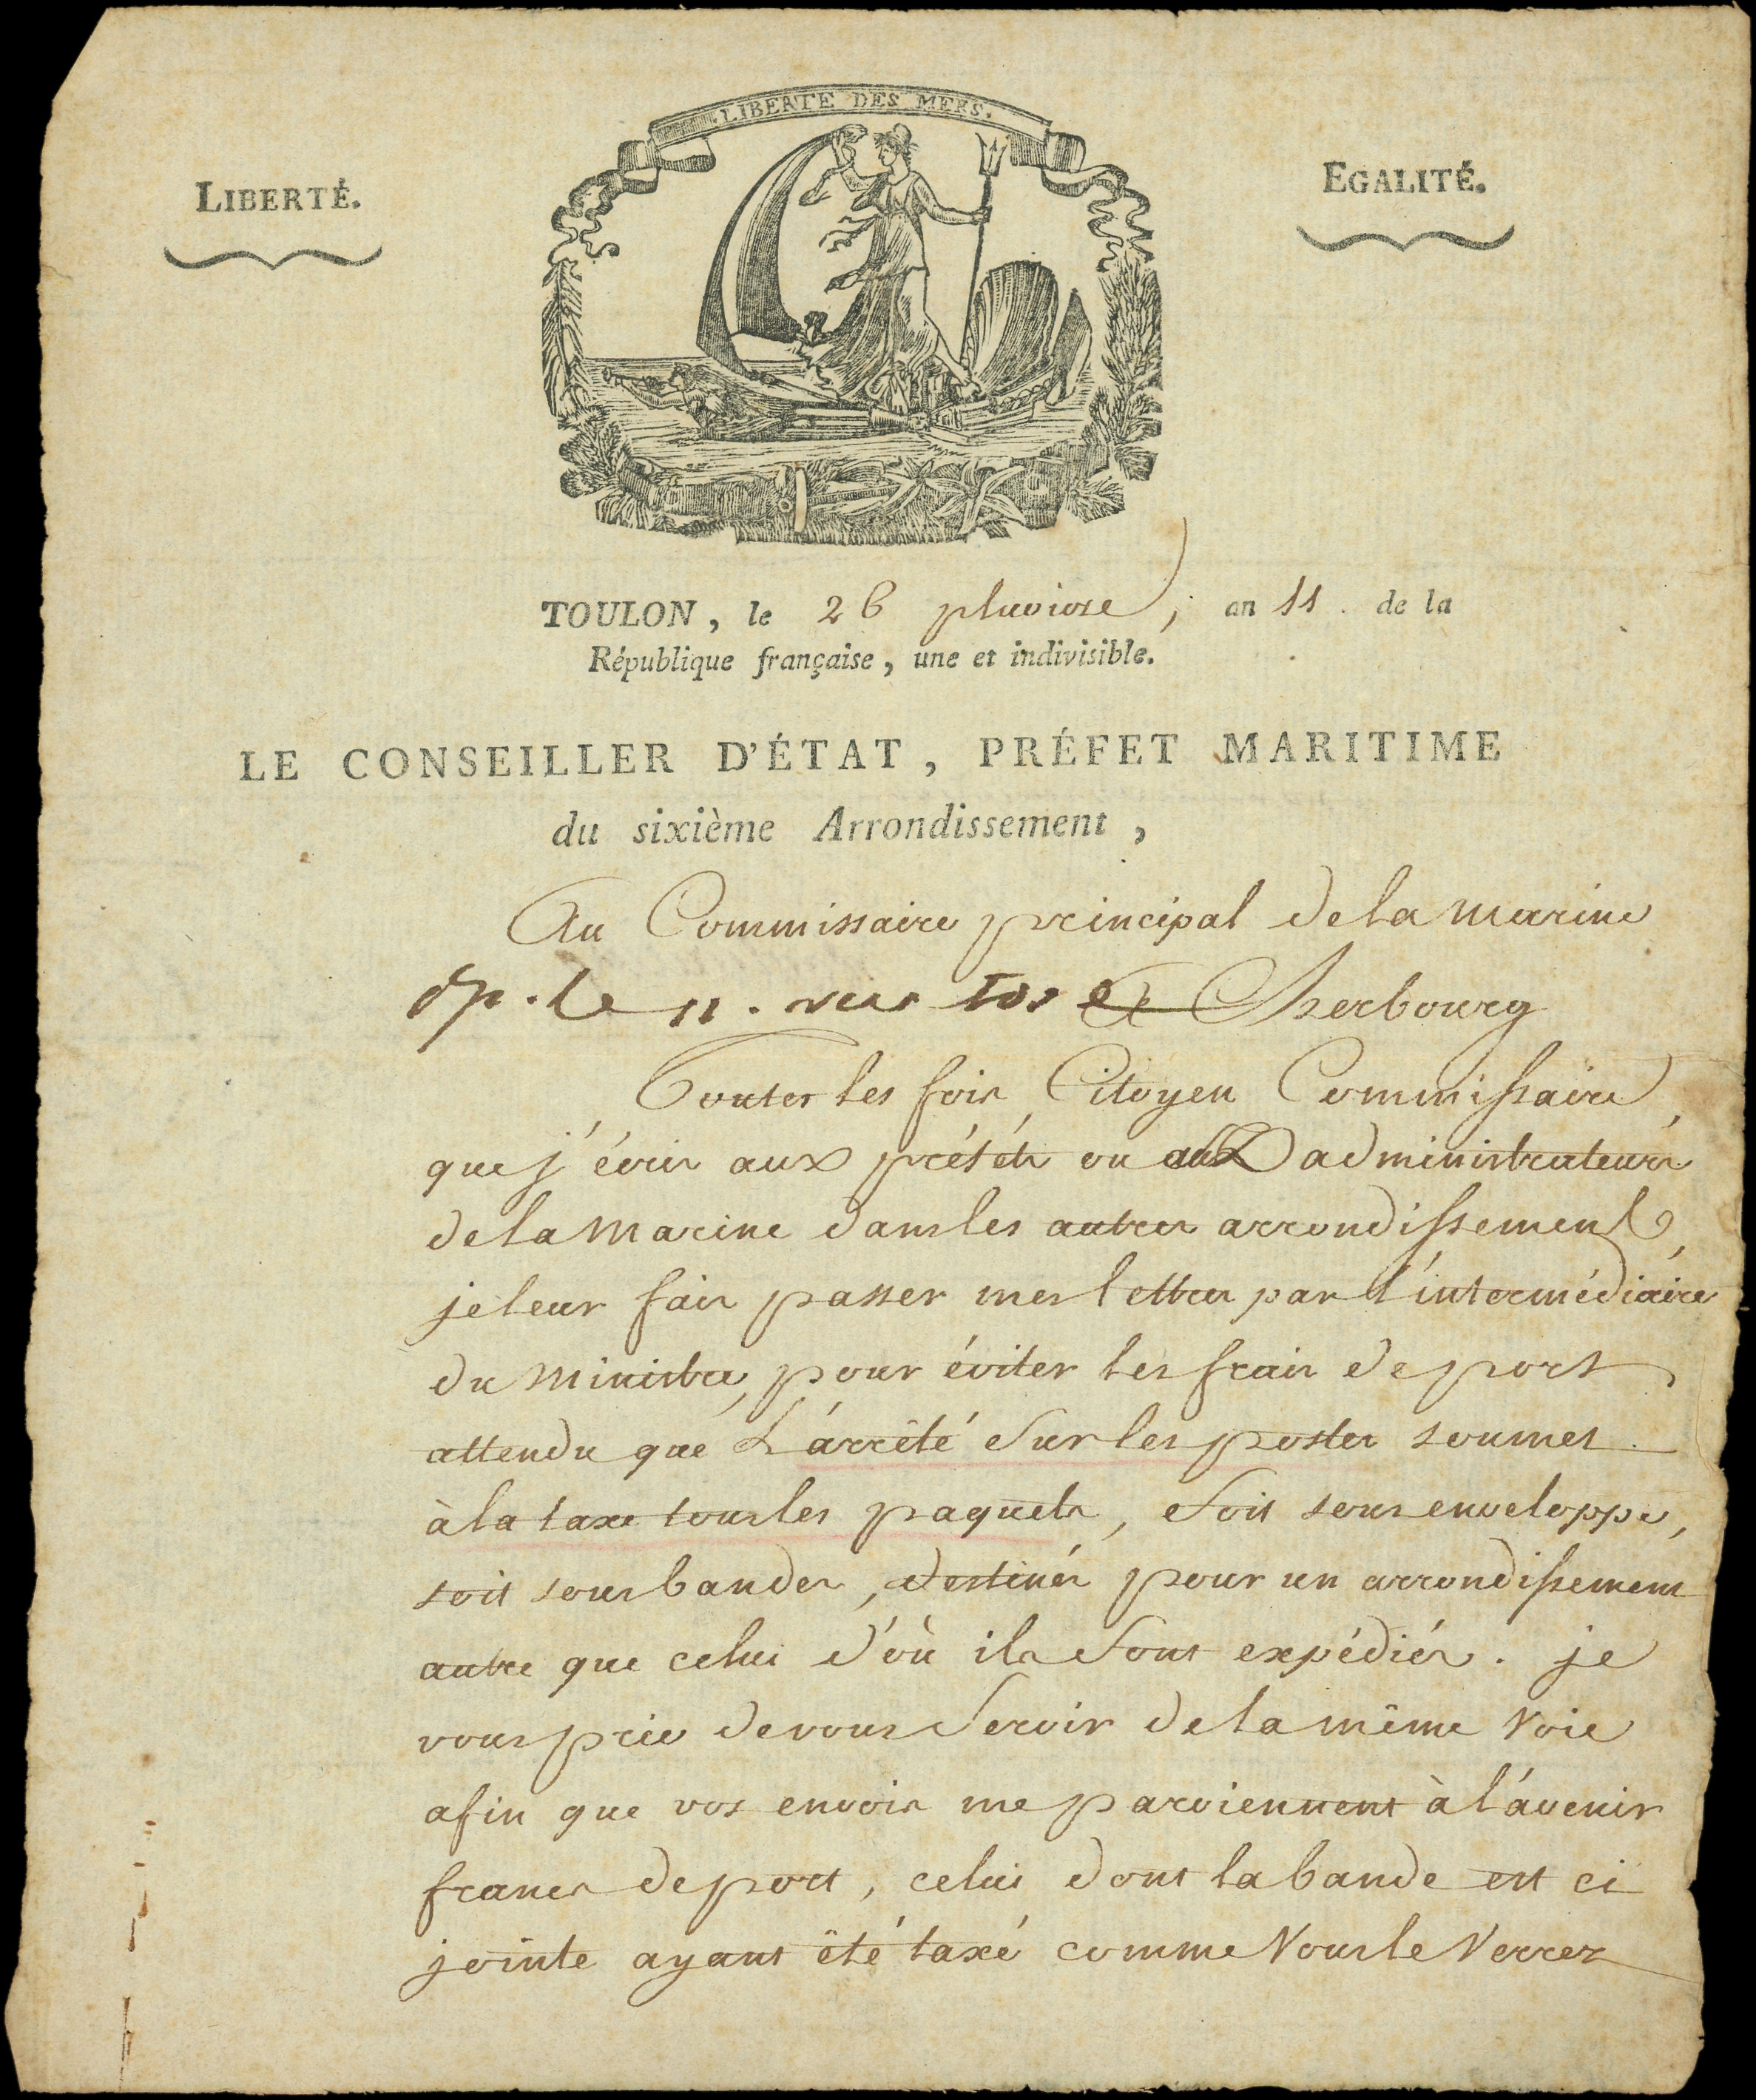 LIBERTE DES MERS.
LIBERTÉ.
EGALITÉ.
TOULON, le 26 pluviose, an 11. de la
République française, une et indivisible.
LE CONSEILLER D'ÉTAT, PRÉFET MARITIME
du sixième Arrondissement,
Au Commissaire principal de la marine
à Cherbourg
Toutes les fois, Citoyen Commissaire,
que j'écris aux préfets ou aux administrateurs
de la marine dans les autres arrondissements,
je leur fais passer mes lettres par l'intermédiaire
du Ministre, pour éviter les frais de port
attendu que L'arrêté sur les postes soumet
à la taxe tous les paquets, soit sous enveloppe,
soit sous bandes, destinés pour un arrondissement
autre que celui d'où ils sont expédiés. je
vous prie de vous servir de la même voie
afin que vos envois me parviennent à l'avenir
francs de port, celui dont la bande est ci
jointe ayant été taxé comme vous le verrez